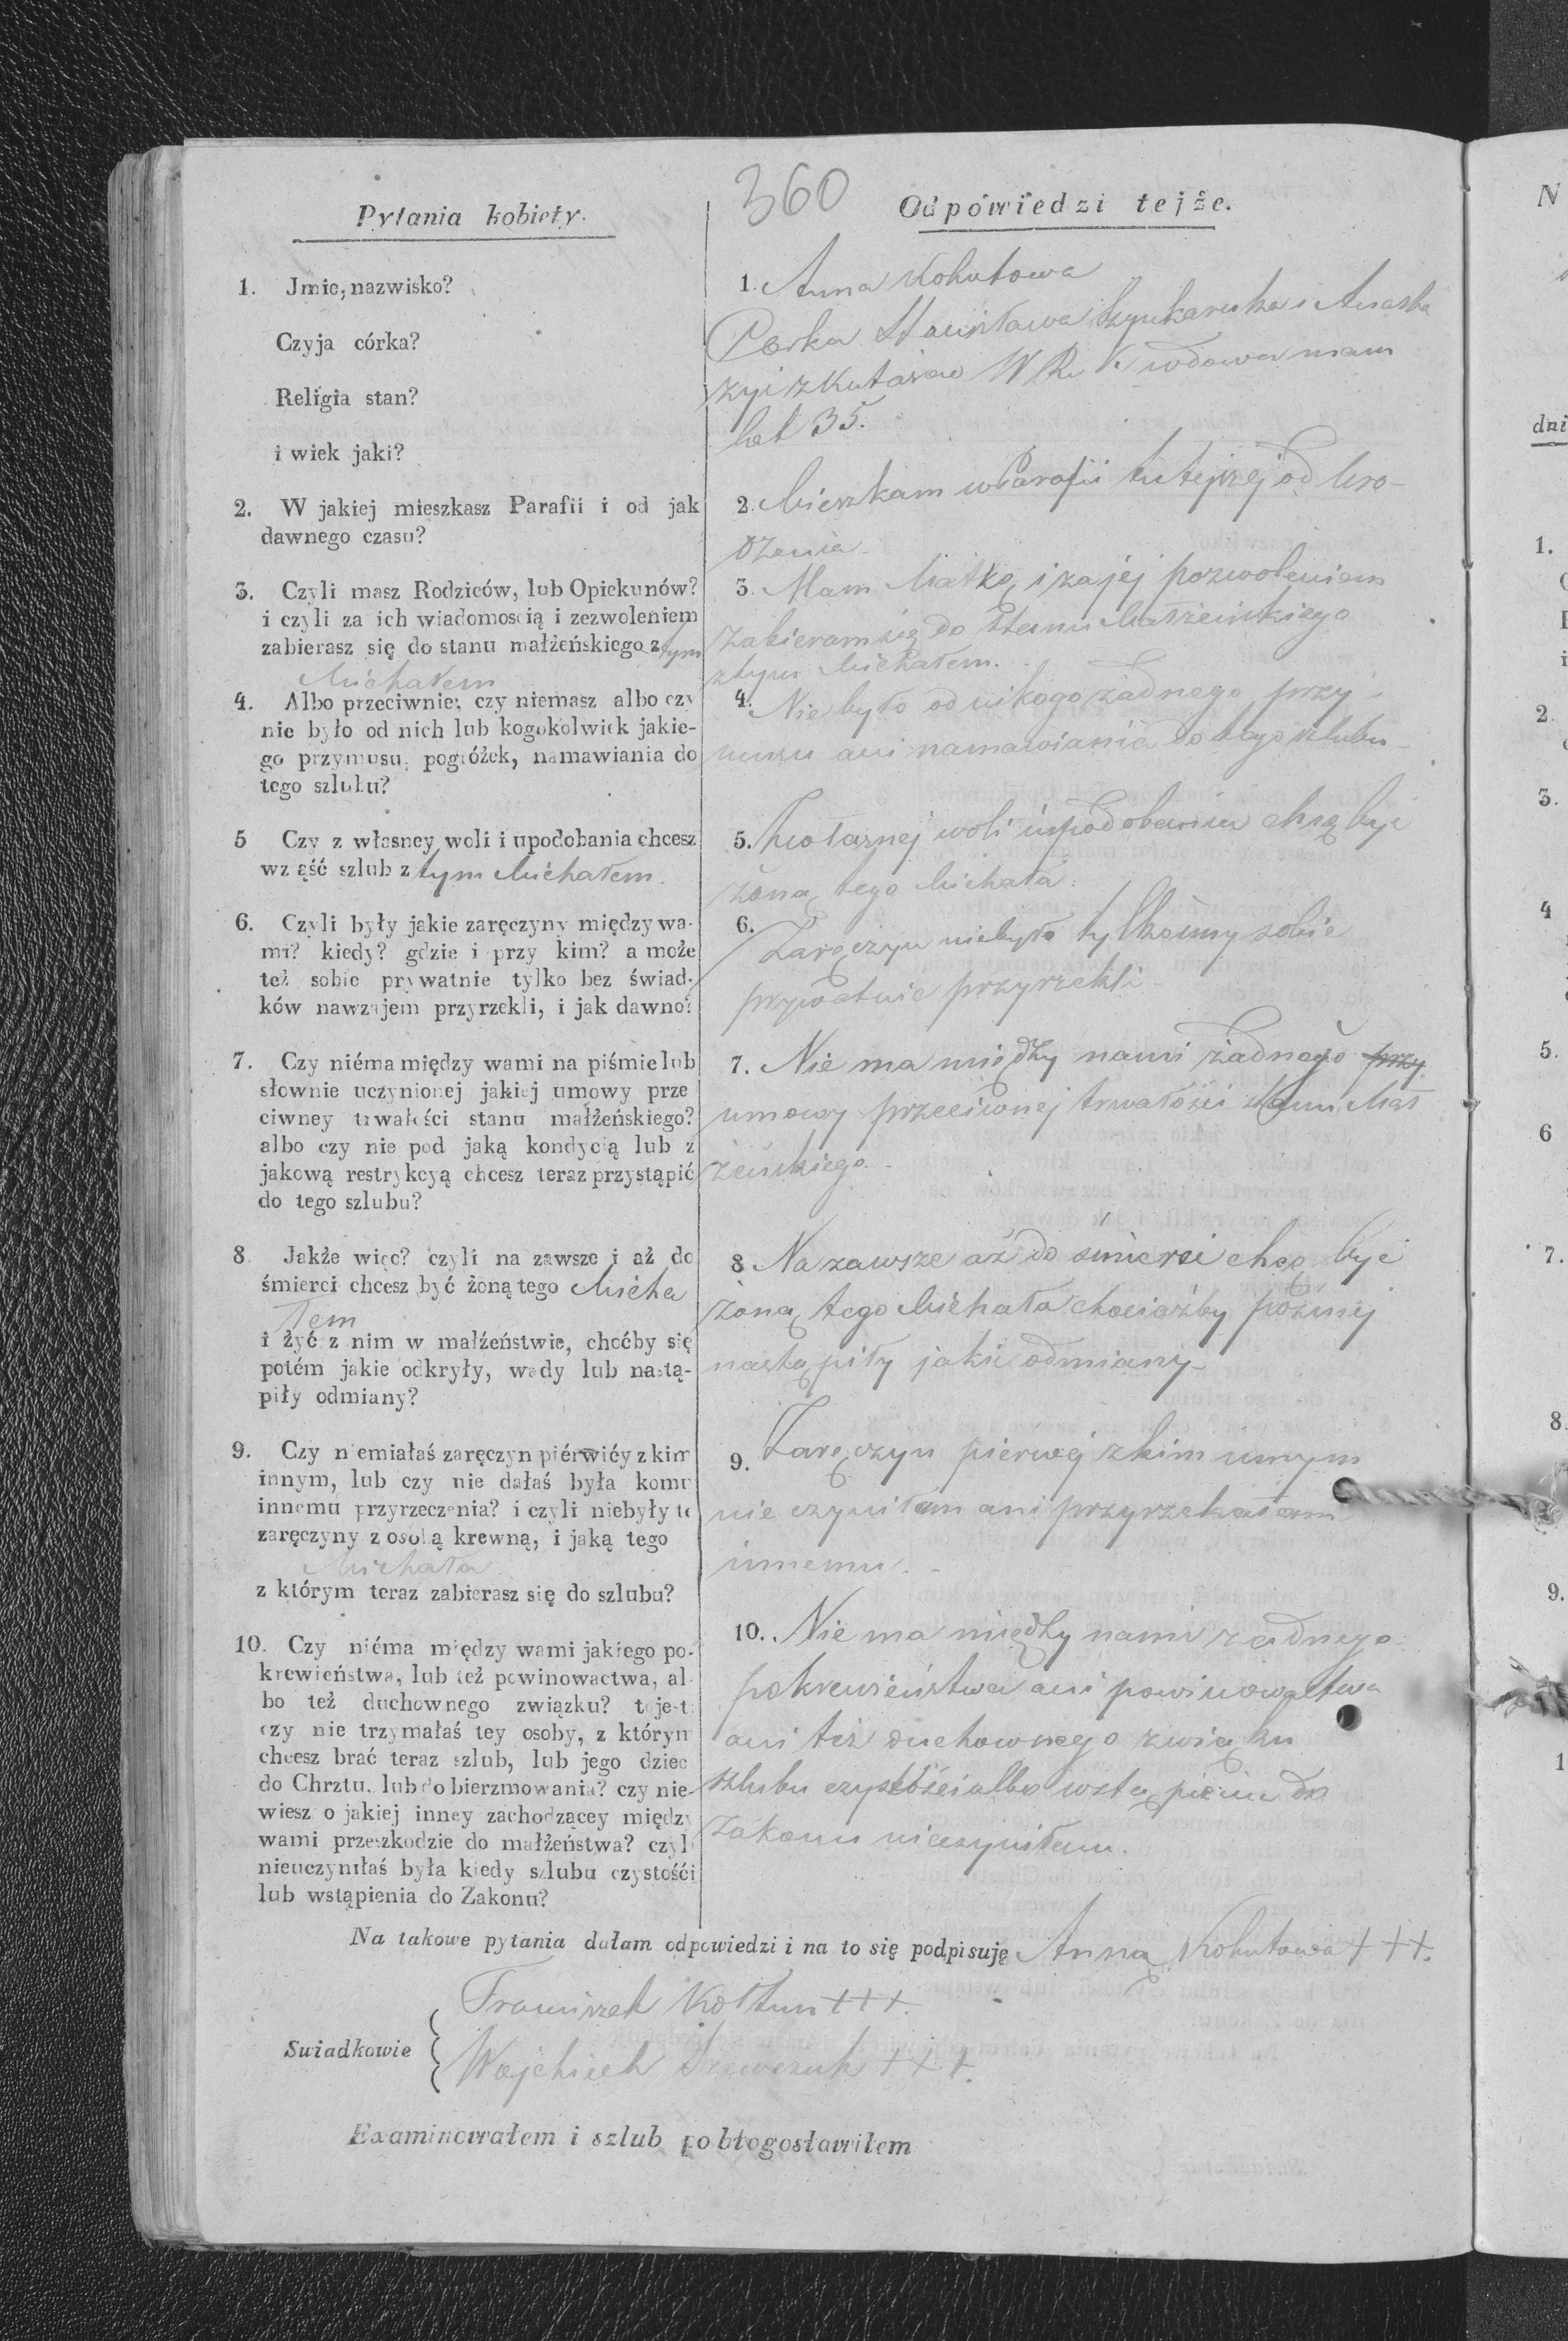 360
Pytania kobiety.
Odpowiedzi tejże.
1. Jmie, nazwisko?
Czyja córka?
Religia stan?
i wiek jaki?
1. Anna Kohutowa
Corka Stanisława i
W wdowa mam
lat 35.
2. W jakiej mieszkasz Parafii i od jak
dawnego czasu?
2. Mieszkam w Parafii tutejszej od Uro-
dzenia
3. Czyli masz Rodziców, lub Opiekunów?
i czyli za ich wiadomoscią i zezwoleniem
zabierasz się do stanu małżeńskiego z tym
Michałem
3. Mam Matkę i za jej pozwoleniem
Zabieram się do Stanu Małżeńskiego
z tym Michałem.
4. Albo przeciwnie; czy niemasz albo czy
nie było od nich lub kogokolwiek jakie-
go przymusu, pogróżek, namawiania do
tego szlubu?
4. Nie było od nikogo żadnego przy-
musu ani namawiania do tego szlubu
5 Czy z własney woli i upodobania chcesz
wz ąść szlub z tym Michałem.
5. Z własnej woli i upodobania chcę być
żoną tego Michała.
6. Czyli były jakie zaręczyny między wa-
mi? kiedy? gdzie i przy kim? a może
też sobie prywatnie tylko bez świad-
ków nawzajem przyrzekli, i jak dawno?
6. Zaręczyn niebyło tylkośmy sobie
prywatnie przyrzekli
7. Czy niéma między wami na piśmie lub
słownie uczynionej jakiej umowy prze
ciwney trwałości stanu małżeńskiego?
albo czy nie pod jaką kondycią lub z
jakową restrykcyą chcesz teraz przystąpić
do tego szlubu?
7. Nie ma między nami żadnego przy
umowy przeciwnej trwałości stanu Mał
żeńskiego.
8. Jakże więc? czyli na zawsze i aż do
śmierci chcesz być żoną tego Micha
łem
i żyć z nim w małżeństwie, choćby się
potém jakie odkryły, wady lub nastą-
piły odmiany?
8 Na zawsze aż do śmierci chcę być
żoną tego Michała chociażby pózniej
nastąpiły jakie odmiany
9. Czy niemiałaś zaręczyn piérwićy z kim
innym, lub czy nie dałaś była komu
innemu przyrzeczenia? i czyli niebyły te
zaręczyny z osobą krewną, i jaką tego
Michała
z którym teraz zabierasz się do szlubu?
9. Zaręczyn pierwej z kim innym
nie czyniłam ani przyrzekałam
innemu.
10. Czy niéma między wami jakiego po-
krewieństwa, lub też powinowactwa, al
bo też duchownego związku? to jest
czy nie trzymałaś tey osoby, z którym
chcesz brać teraz szlub, lub jego dziec
do Chrztu, lub do bierzmowania? czy nie-
wiesz o jakiej inney zachodzącey między
wami przeszkodzie do małżeństwa? czyl
nieuczyniłaś była kiedy szlubu czystośći
lub wstąpienia do Zakonu?
10. Nie ma między nami żadnego
pokrewieństwa ani powinowactwa
ani też duchownego związku
szlubu czystości albo wstąpienia do
Zakonu nieczyniłam.
Na takowe pytania dałam odpowiedzi i na to się podpisuję Anna Kohutowa +++.
Swiadkowie
Franciszek Kołtun +++.
Wojchiech Szewczuk +++.
Examinowałem i szlub pobłogosławiłem
N
dni
1.
2.
3.
4
5.
6
7.
8.
9.
1